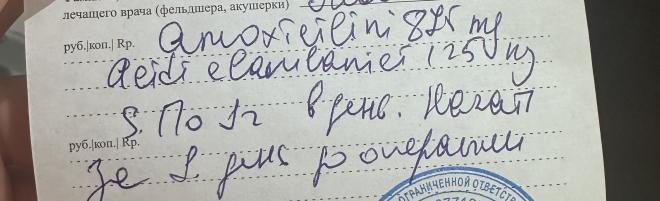 лечащего врача (фельдшера, акушерки)
руб.|коп.| Rp. Amoxicilini 875 mg
Acidi clavulanici 125 mg
S. По 1т в день. Начат
руб.|коп.| Rp.
за 1 день до операции
ОГРАНИЧЕННОЙ ОТВЕТСТВЕ